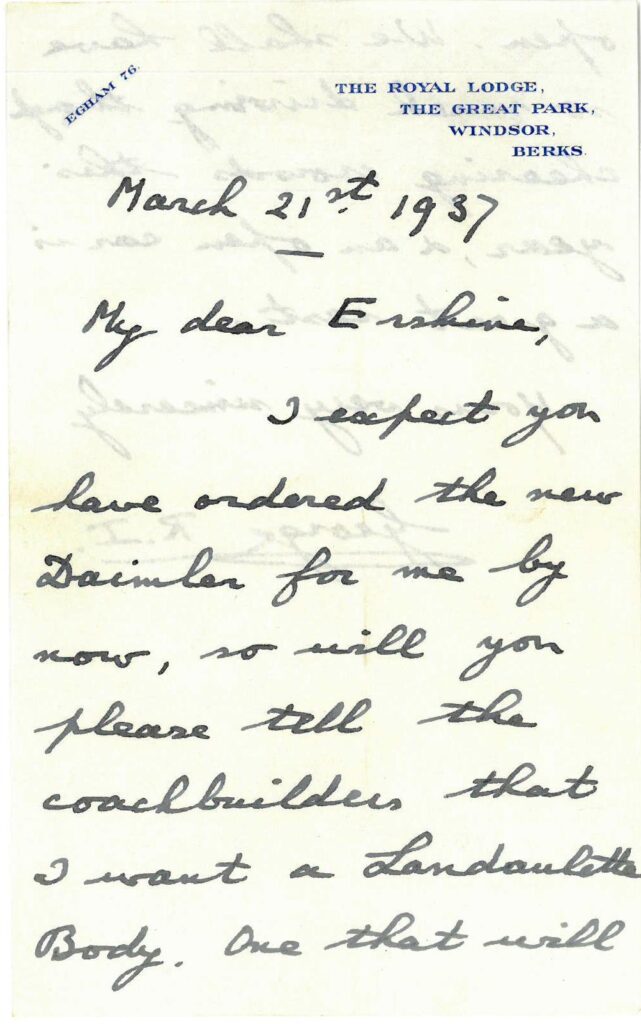 EGHAM 76.
THE ROYAL LODGE,
THE GREAT PARK,
WINDSOR,
BERKS.
March 21st. 1937
My dear Erskine,
I expect you
have ordered the new
Daimler for me by
now, so will you
please tell the
coachbuilders that
I want a Landaulette
Body. One that will